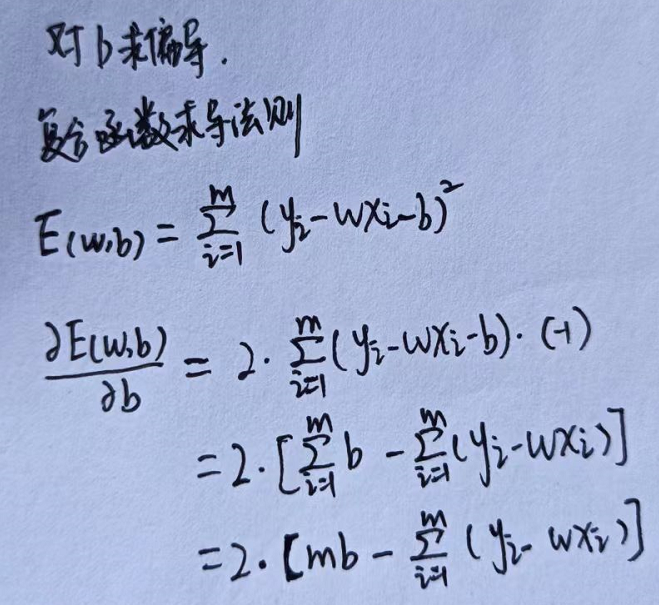 对b求偏导.
复合函数求导法则
E(w,b) = \sum_{i=1}^{m} (y_i - wx_i - b)^2
\frac{\partial E(w,b)}{\partial b} = 2 \cdot \sum_{i=1}^{m} (y_i - wx_i - b) \cdot (-1)
= 2 \cdot [\sum_{i=1}^{m} b - \sum_{i=1}^{m} (y_i - wx_i)]
= 2 \cdot [mb - \sum_{i=1}^{m} (y_i - wx_i)]